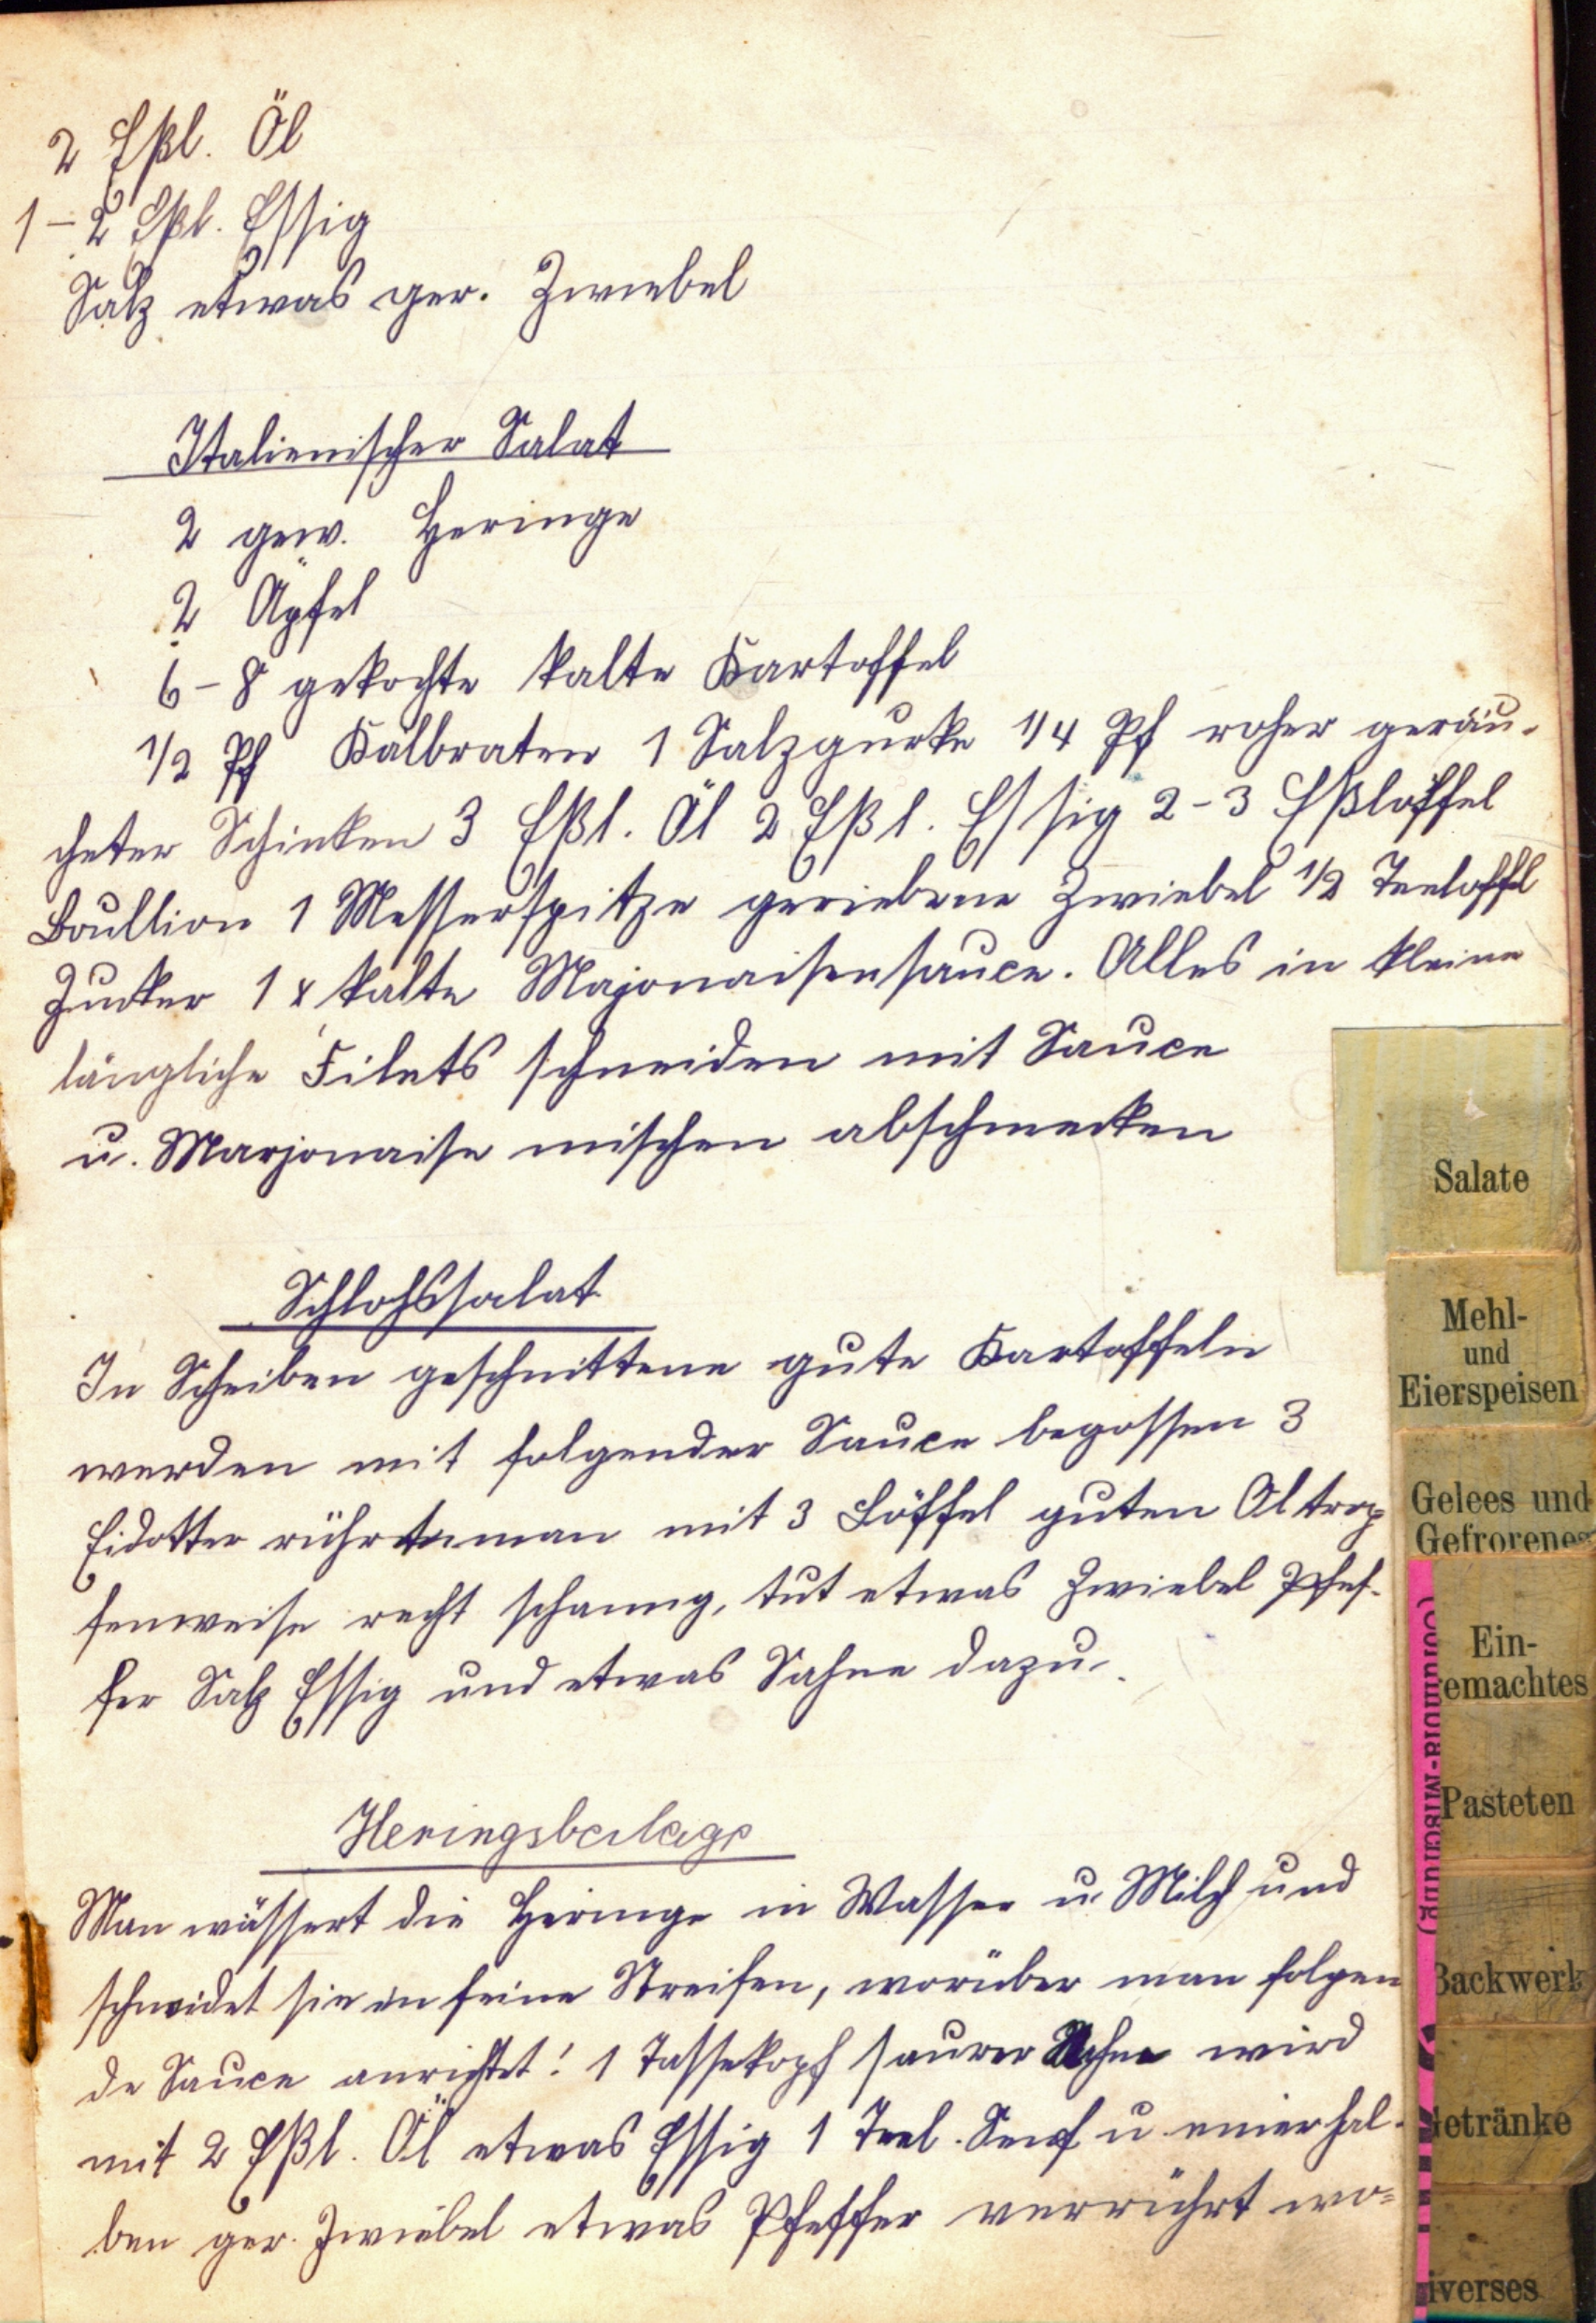 2 Eßl. Öl
1–2 Eßl. Essig
Salz etwas ger. Zwiebel
Italienischer Salat
2 gew. Heringe
2 Äpfel
6–8 gekochte kalte Kartoffel
1/2 Pf Kalbraten 1 Salzgurke 1/4 Pf roher geräu-
cheter Schinken 3 Eßl. Öl 2 Eßl. Essig 2–3 Eßlöffel
Boullion 1 Messerspitze geriebene Zwiebel 1/2 Teeloffl
Zucker 1 x kalte Majonaisensauce. Alles in kleine
längliche Filets schneiden mit Sauce
u. Marjonaise mischen abschmecken
Schloßsalat
In Scheiben geschnittene gute Kartoffeln
werden mit folgender Sauce begossen 3
Eidotter rührt man mit 3 Löffel guten Öl trop-
fenweise recht schaumg, tut etwas Zwiebel Pfef-
fer Salz Essig und etwas Sahne dazu.
Heringsbeilage
Man wässert die Heringe in Wasser u. Milch und
schneidet sie in feine Streifen, worüber man folgen
de Sauce anrichtet! 1 Tassekopf saurer Sahne wird
mit 2 Eßl. Öl etwas Essig 1 Teel. Senf u einer hal-
ben ger. Zwiebel etwas Pfeffer verrührt wo=
Salate
Mehl-
und
Eierspeisen
Gelees und
Gefrorenes
Ein-
emachtes
Pasteten
Backwerk
Getränke
iverses